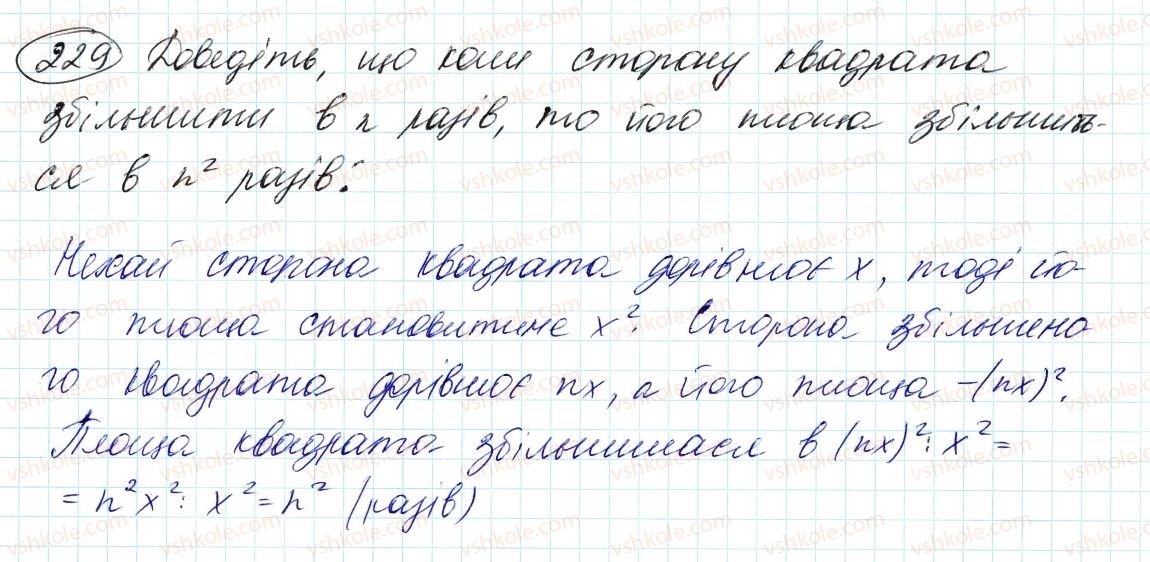 229 Доведіть, що коли сторону квадрата
збільшити в n разів, то його площа збільшить-
ся в n² разів.
Нехай сторона квадрата дорівнює x, тоді йо-
го площа становитиме x². Сторона збільшено
го квадрата дорівнює nx, а його площа –(nx)².
Площа квадрата збільшилася в (nx)² : x² =
= n²x² : x² = n² (разів)
vshkole.com